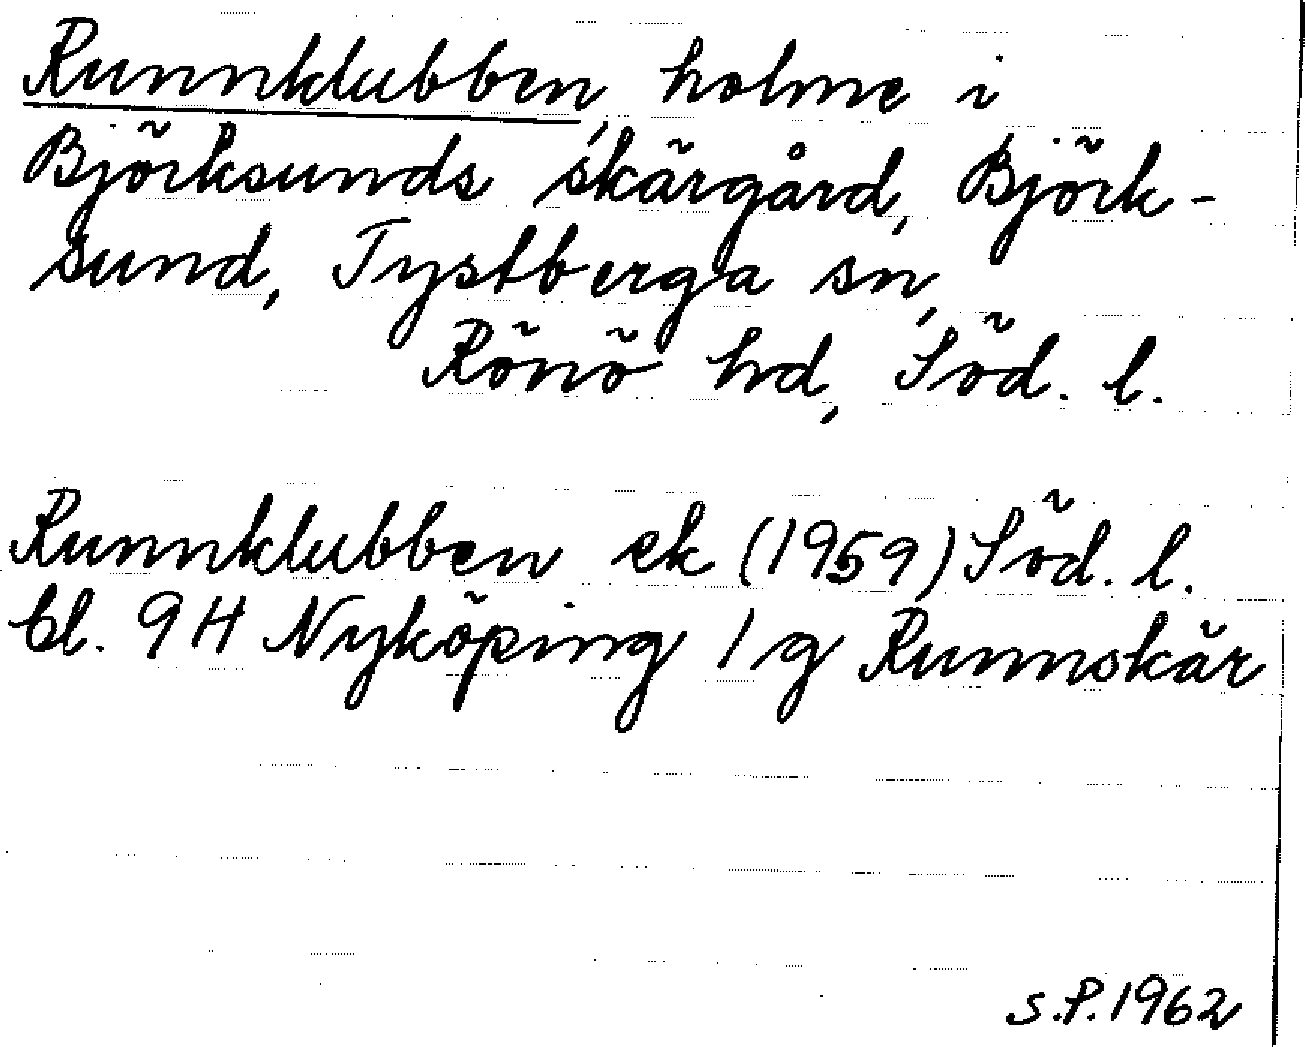 Runnklubben, holme i
Björksunds skärgård, Björk-
sund, Tystberga sn,
Rönö hd, Söd. l.
Runnklubben ek (1959) Söd. l.
bl. 9H Nyköping 1g Runnskär
S.P. 1962